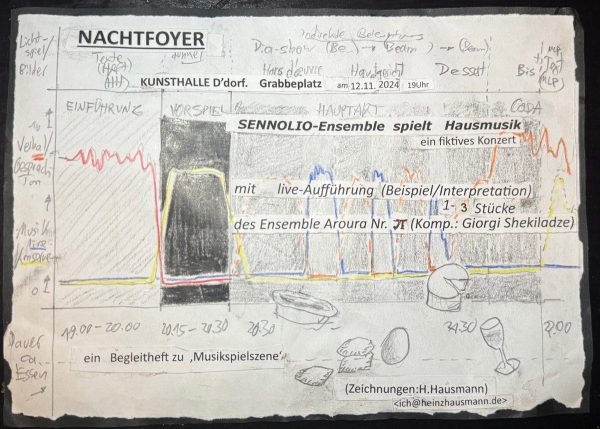 NACHTFOYER
indirekte
Licht-
spiel/
Bilder
Texte
dunkel
Dia-show (Be
Beam
Hauptgericht
Dessat
Bis
KUNSTHALLE D'dorf. Grabbeplatz am 12.11.2024 19Uhr
EINFÜHRUNG VORSPIEL HAUPTAKT CODA
SENNOLIO-Ensemble spielt Hausmusik
ein fiktives Konzert
10
Verbal/
Gespräch
Ton
mit live-Aufführung (Beispiel/Interpretation)
1- 3 Stücke
des Ensemble Aroura Nr. π (Komp.: Giorgi Shekiladze)
Musik
live
0
19.00-20.00 20.15-20.30 20.30 21.30 22.00
Dauer
ca.
Essen
ein Begleitheft zu ‚Musikspielszene'
(Zeichnungen:H.Hausmann)
<ich@heinzhausmann.de>